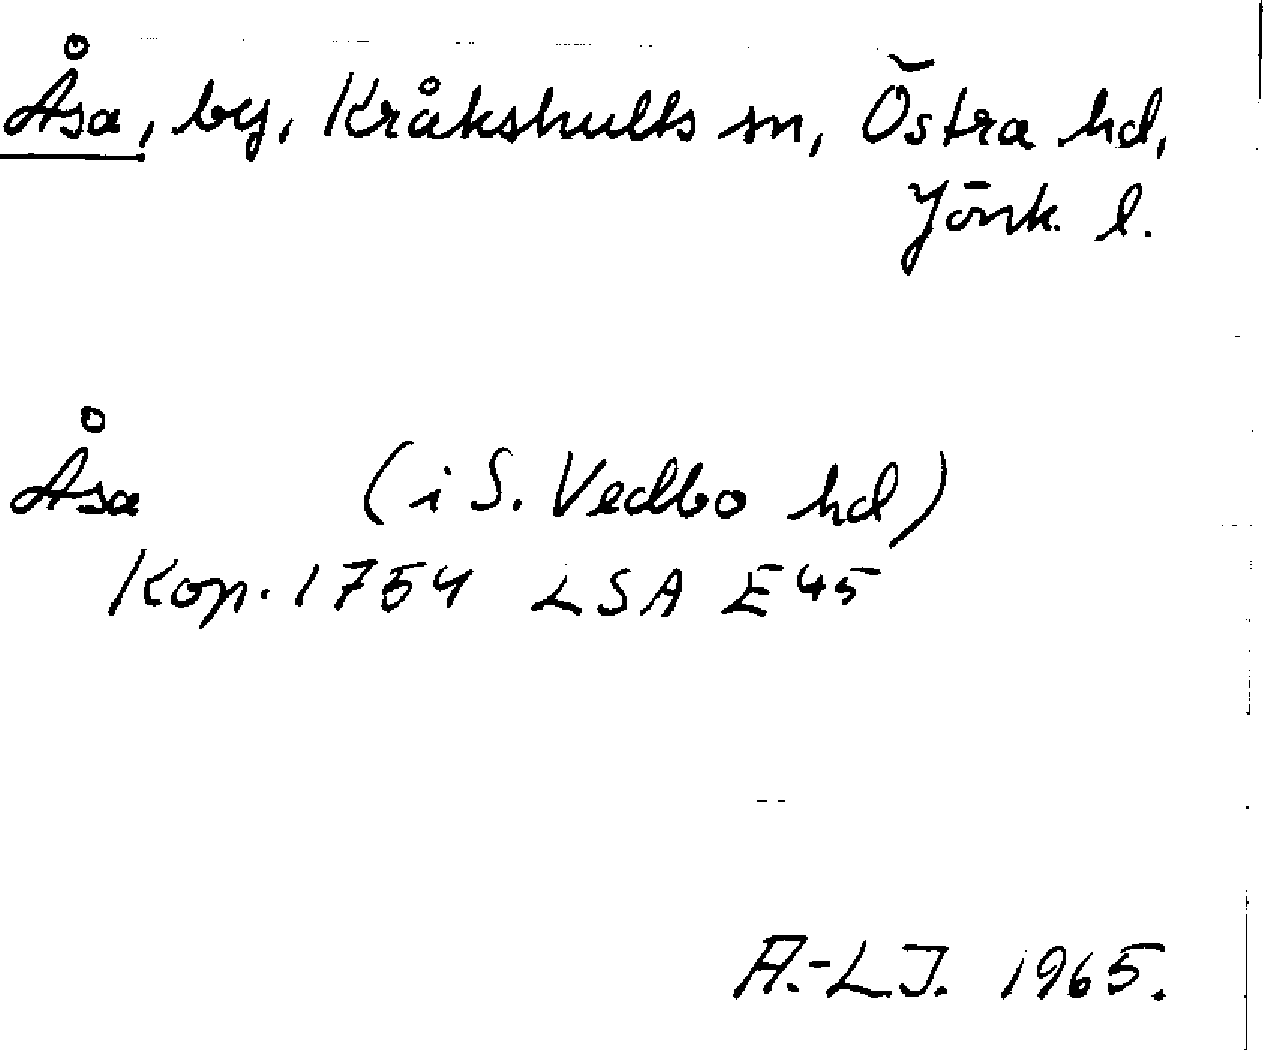 Åsa, by, Kråkshults sn, Östra hd,
Jönk. l.
Åsa (i S. Vedbo hd)
Kop. 1754 LSA E45
A.-L.J. 1965.